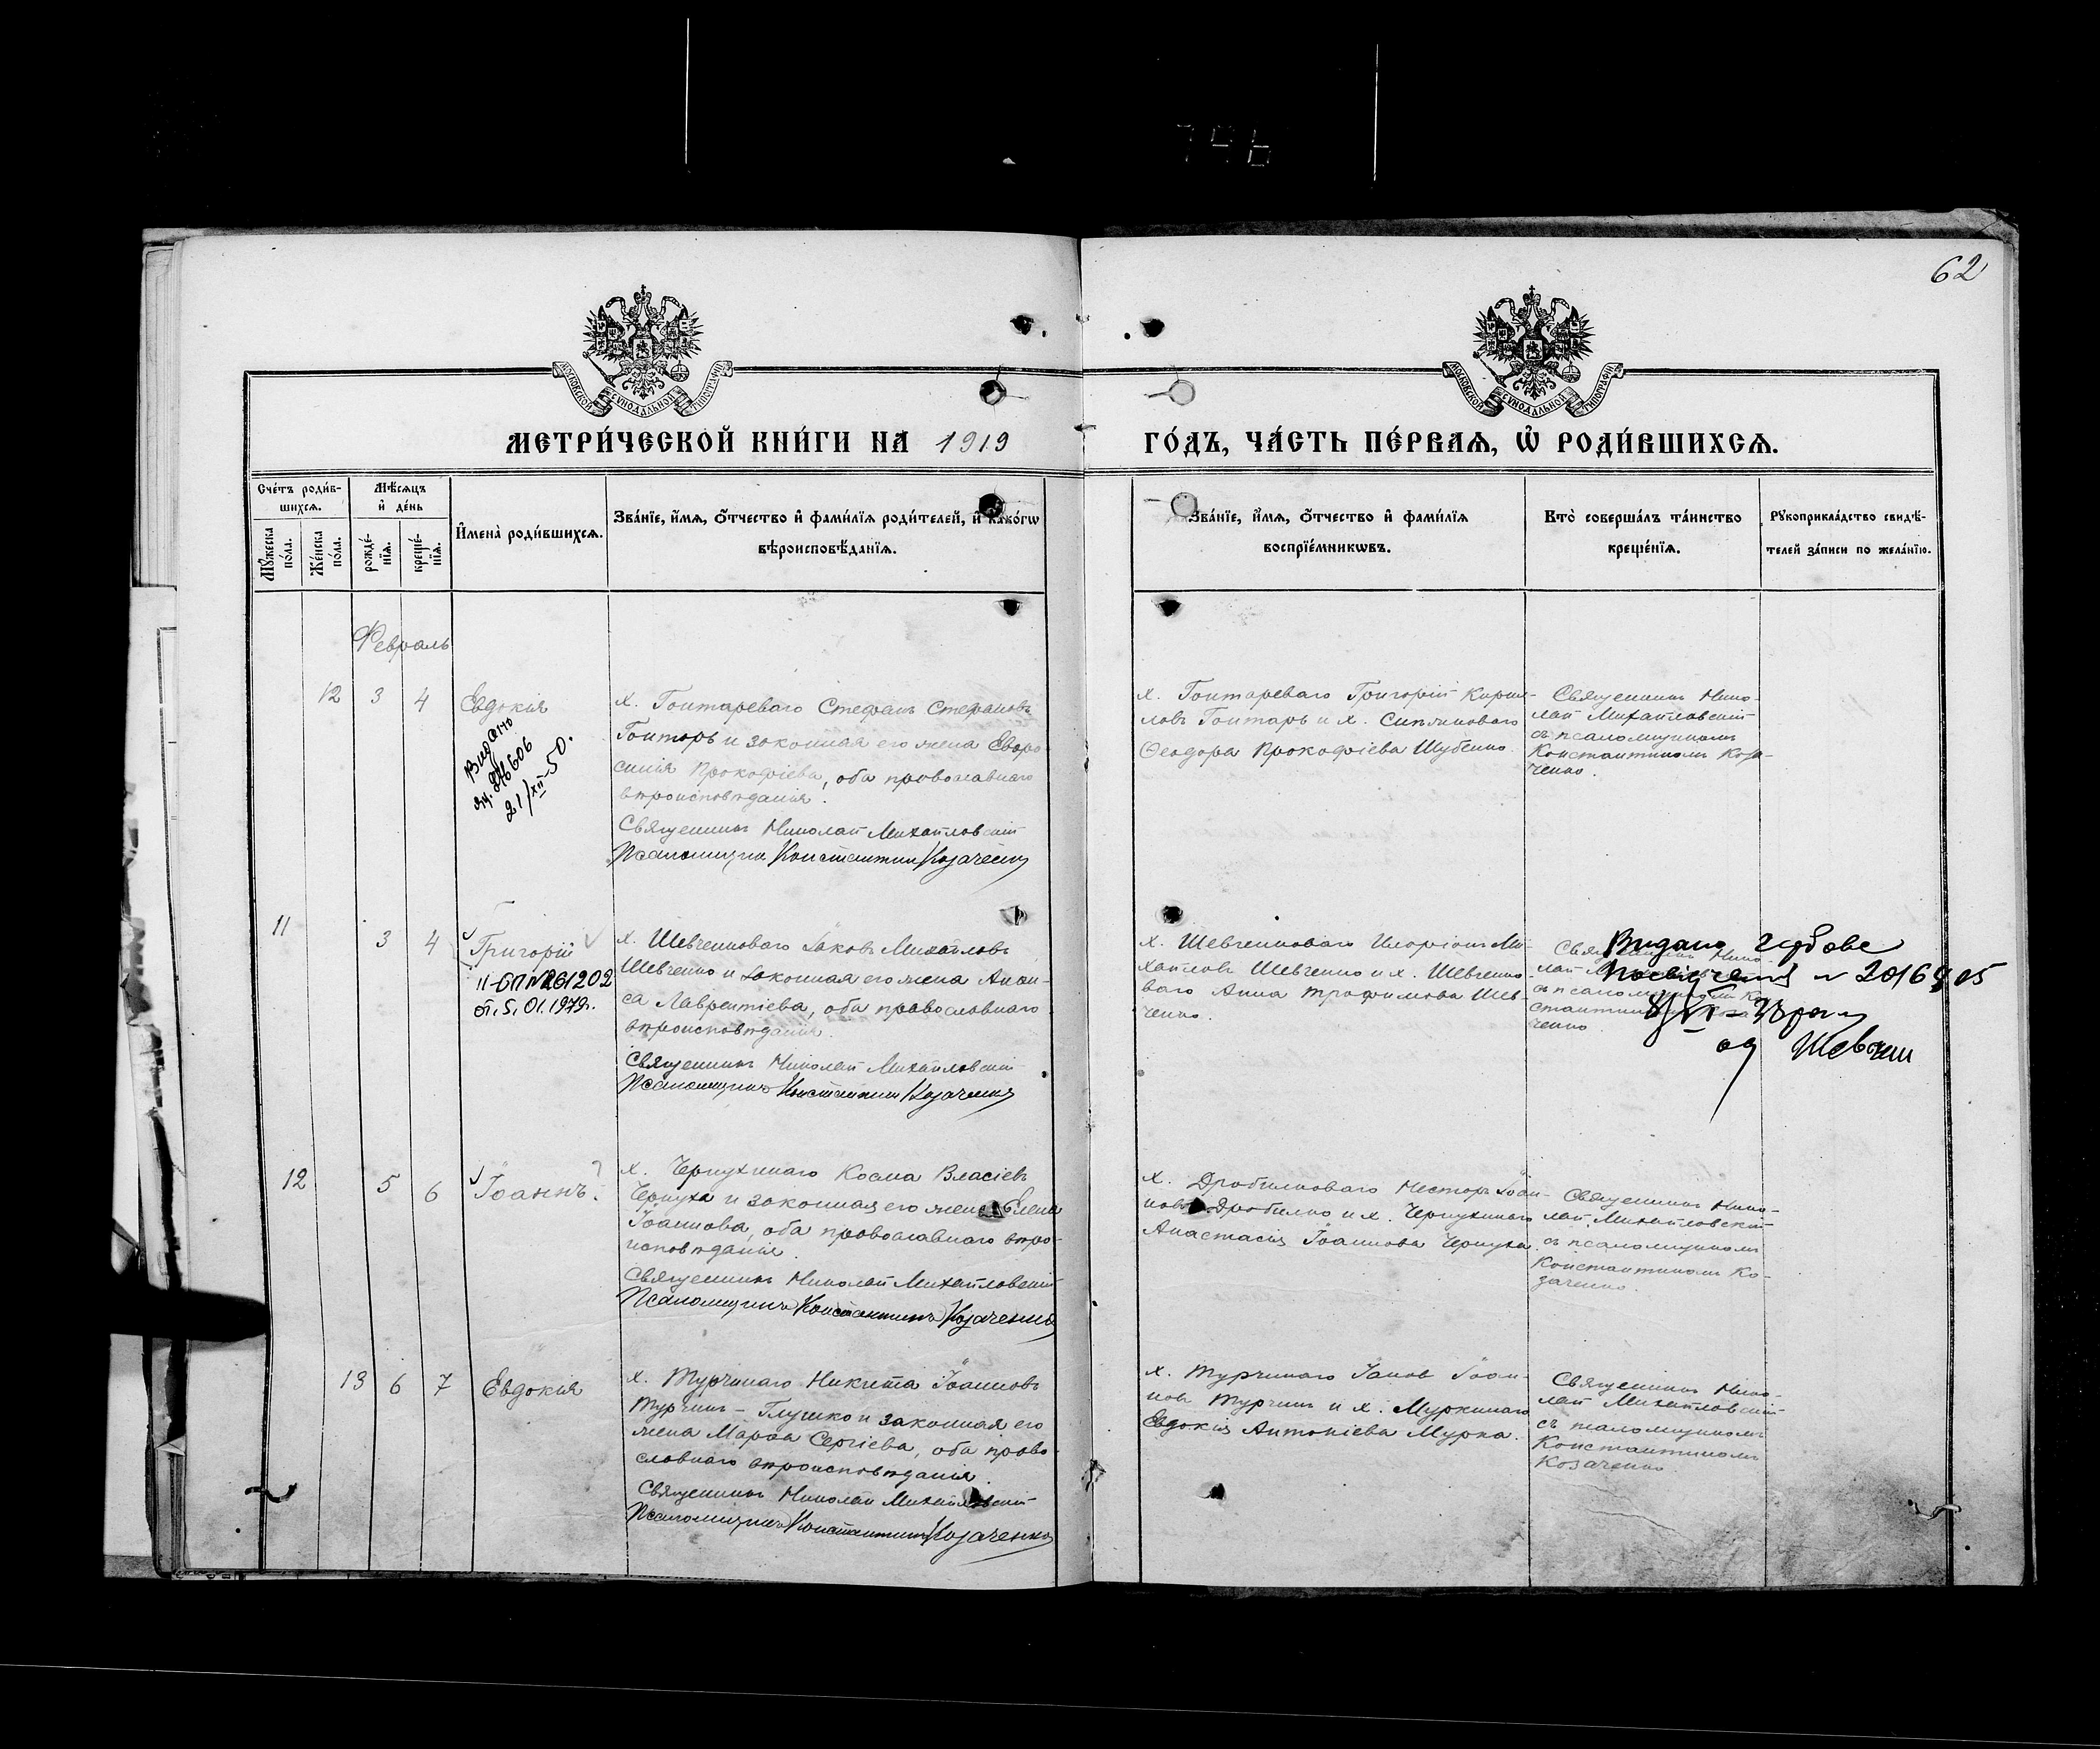 62
МОСКОВСКОЙ СѴНОДАЛЬНОЙ ТИПОГРАФІИ
МОСКОВСКОЙ СѴНОДАЛЬНОЙ ТИПОГРАФІИ
МЕТРИ́ЧЕСКОЙ КНИ́ГИ НА 1919
ГО́ДЪ, ЧА́СТЬ ПЕ́РВАѦ, Ѡ҆ РОДИ́ВШИХСѦ.
Сче́тъ роди́в-
шихсѧ.
Мѣ́сѧцъ
и҆ де́нь
Мꙋ́жеска
по́ла.
Же́нска
по́ла.
рожде́-
нїѧ.
креще́-
нїѧ.
И҆мена̀ роди́вшихсѧ.
Зва́нїе, и҆́мѧ, ѻ҆́тчество и҆ фами́лїѧ роди́телей, и҆ како́гѡ
вѣроисповѣ́данїѧ.
Зва́нїе, и҆́мѧ, ѻ҆́тчество и҆ фами́лїѧ
воспрїе́мникѡвъ.
Кто̀ соверша́лъ та́инство
креще́нїѧ.
Рꙋкоприкла́дство свидѣ́-
телей за́писи по жела́нїю.
Февраль
12 3 4 Евдокія
Видано
21/XII-50.
х. Гонтареваго Стефанъ Стефановъ
Гонтарь и законная его жена Евфро-
синія Прокофіева, оба православнаго
вѣроисповѣданія.
Священникъ Николай Михайловскій
Псаломщикъ Константинъ Козаченко
х. Гонтареваго Григорій Кирил-
ловъ Гонтарь и х.
Ѳеодора Прокофіева Шубенко.
Священникъ Нико-
лай Михайловскій
съ псаломщикомъ
Константиномъ Коза-
ченко.
11 3 4 Григорій
II-БП №261202
от. 5. 01. 1979г.
х. Шевченковаго Іаковъ Михайловъ
Шевченко и законная его жена Анаи-
са Лаврентіева, оба православнаго
вѣроисповѣданія.
Священникъ Николай Михайловскій
Псаломщикъ Константинъ Козаченко
х. Шевченковаго Иларіонъ Ми-
хайловъ Шевченко и х. Шевченко-
ваго Анна Трофимова Шев-
ченко.
Священникъ Нико-
лай
съ псаломщикомъ Кон-
стантиномъ Коза-
ченко.
Видано
12 5 6 Іоаннъ?
х. Чернухинаго Косма Власіевъ
Чернуха и законная его жена Елена
Іоаннова, оба православнаго вѣро-
исповѣданія.
Священникъ Николай Михайловскій
Псаломщикъ Константинъ Козаченко
х. Дробилковаго Несторъ Іоан-
новъ Дробилко и х. Чернухинаго
Анастасія Іоаннова Чернуха.
Священникъ Нико-
лай Михайловскій
съ псаломщикомъ
Константиномъ Ко-
заченко.
13 6 7 Евдокія
х. Турчинаго Никита Іоанновъ
Турчинъ - Глушко и законная его
жена Марѳа Сергіева, оба право-
славнаго вѣроисповѣданія.
Священникъ Николай Михайловскій
Псаломщикъ Константинъ Козаченко
х. Турчинаго Іаковъ Іоан-
новъ Турчинъ и х. Муркинаго
Евдокія Антоніева Мурка.
Священникъ Нико-
лай Михайловскій
съ псаломщикомъ
Константиномъ
Козаченко.